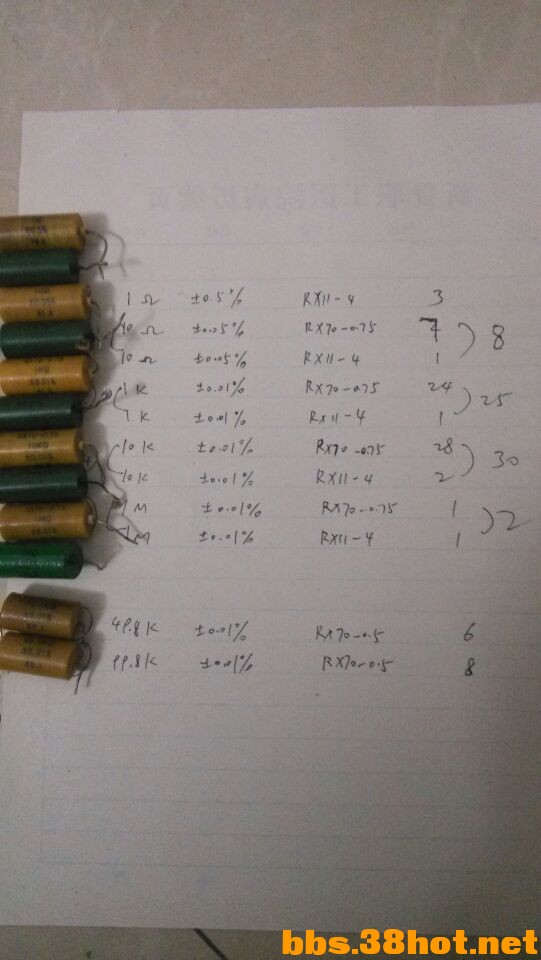 1Ω ±0.5% RX11-4 3
10Ω ±0.05% RX70-0.75 7
10Ω ±0.05% RX11-4 1
8
1K ±0.01% RX70-0.75 24
1K ±0.01% RX11-4 1
25
10K ±0.01% RX70-0.75 28
10K ±0.01% RX11-4 2
30
1M ±0.01% RX70-0.75 1
1M ±0.01% RX11-4 1
2
49.8K ±0.01% RX70-0.5 6
99.8K ±0.01% RX70-0.5 8
bbs.38hot.net